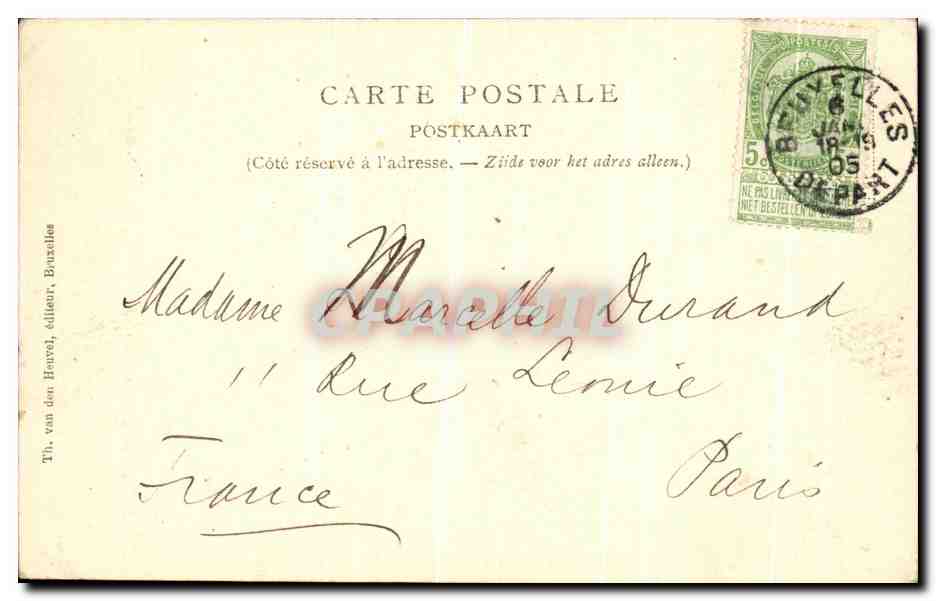 CARTE POSTALE
POSTKAART
(Côté réservé à l'adresse. — Zijde voor het adres alleen.)
5
NE PAS LIVR
NIET BESTELLEN OP
BRUXELLES
6
JANV
18-19
05
DEPART
Th. van den Heuvel, éditeur, Bruxelles
CPAPHIL
Madame Marcelle Durand
11 Rue Leonie
Paris
France